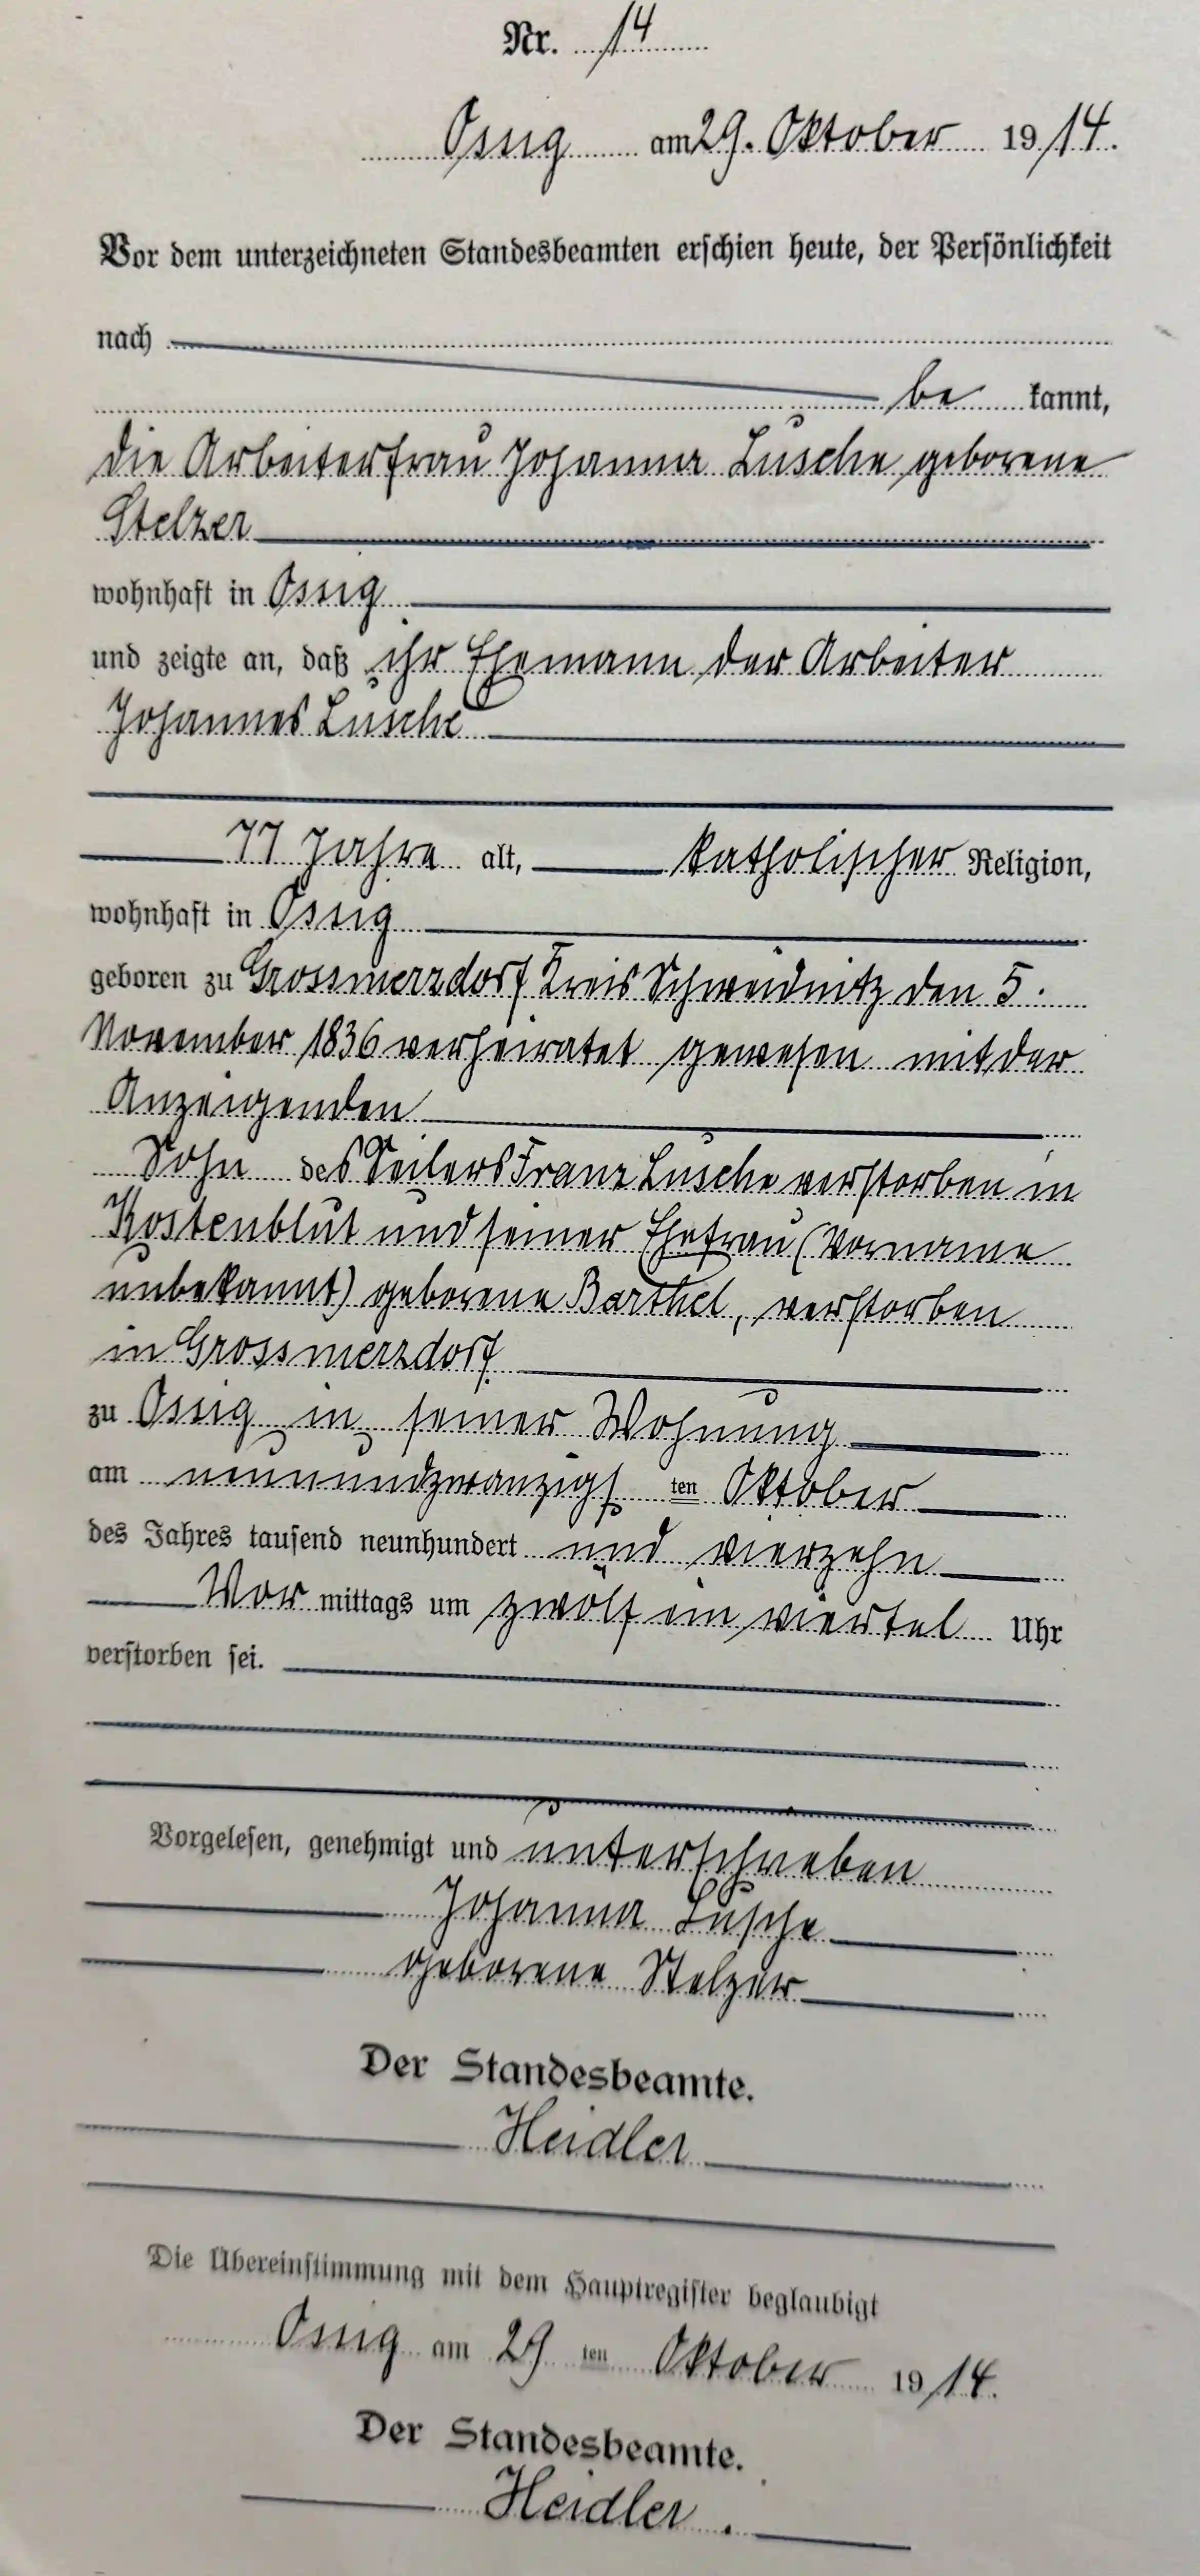 Nr. 14
Ossig am 29. Oktober 1914.
Vor dem unterzeichneten Standesbeamten erschien heute, der Persönlichkeit
nach
be kannt,
die Arbeiterfrau Johanna Lusche geborene
Stelzer
wohnhaft in Ossig
und zeigte an, daß ihr Ehemann der Arbeiter
Johannes Lusche
77 Jahre alt, katholischer Religion,
wohnhaft in Ossig
geboren zu Grossmerzdorf Kreis Schweidnitz den 5.
November 1836 verheiratet gewesen mit der
Anzeigenden
Sohn des Seilers Franz Lusche verstorben in
Kostenblut und seiner Ehefrau (Vorname
unbekannt) geborene Barthel, verstorben
in Grossmerzdorf
zu Ossig in seiner Wohnung
am neunundzwanzigsten Oktober
des Jahres tausend neunhundert und vierzehn
Vor mittags um zwölf ein viertel Uhr
verstorben sei.
Vorgelesen, genehmigt und unterschrieben
Johanna Lusche
geborene Stelzer
Der Standesbeamte.
Heidler
Die Übereinstimmung mit dem Hauptregister beglaubigt
Ossig am 29 ten Oktober 1914.
Der Standesbeamte.
Heidler.